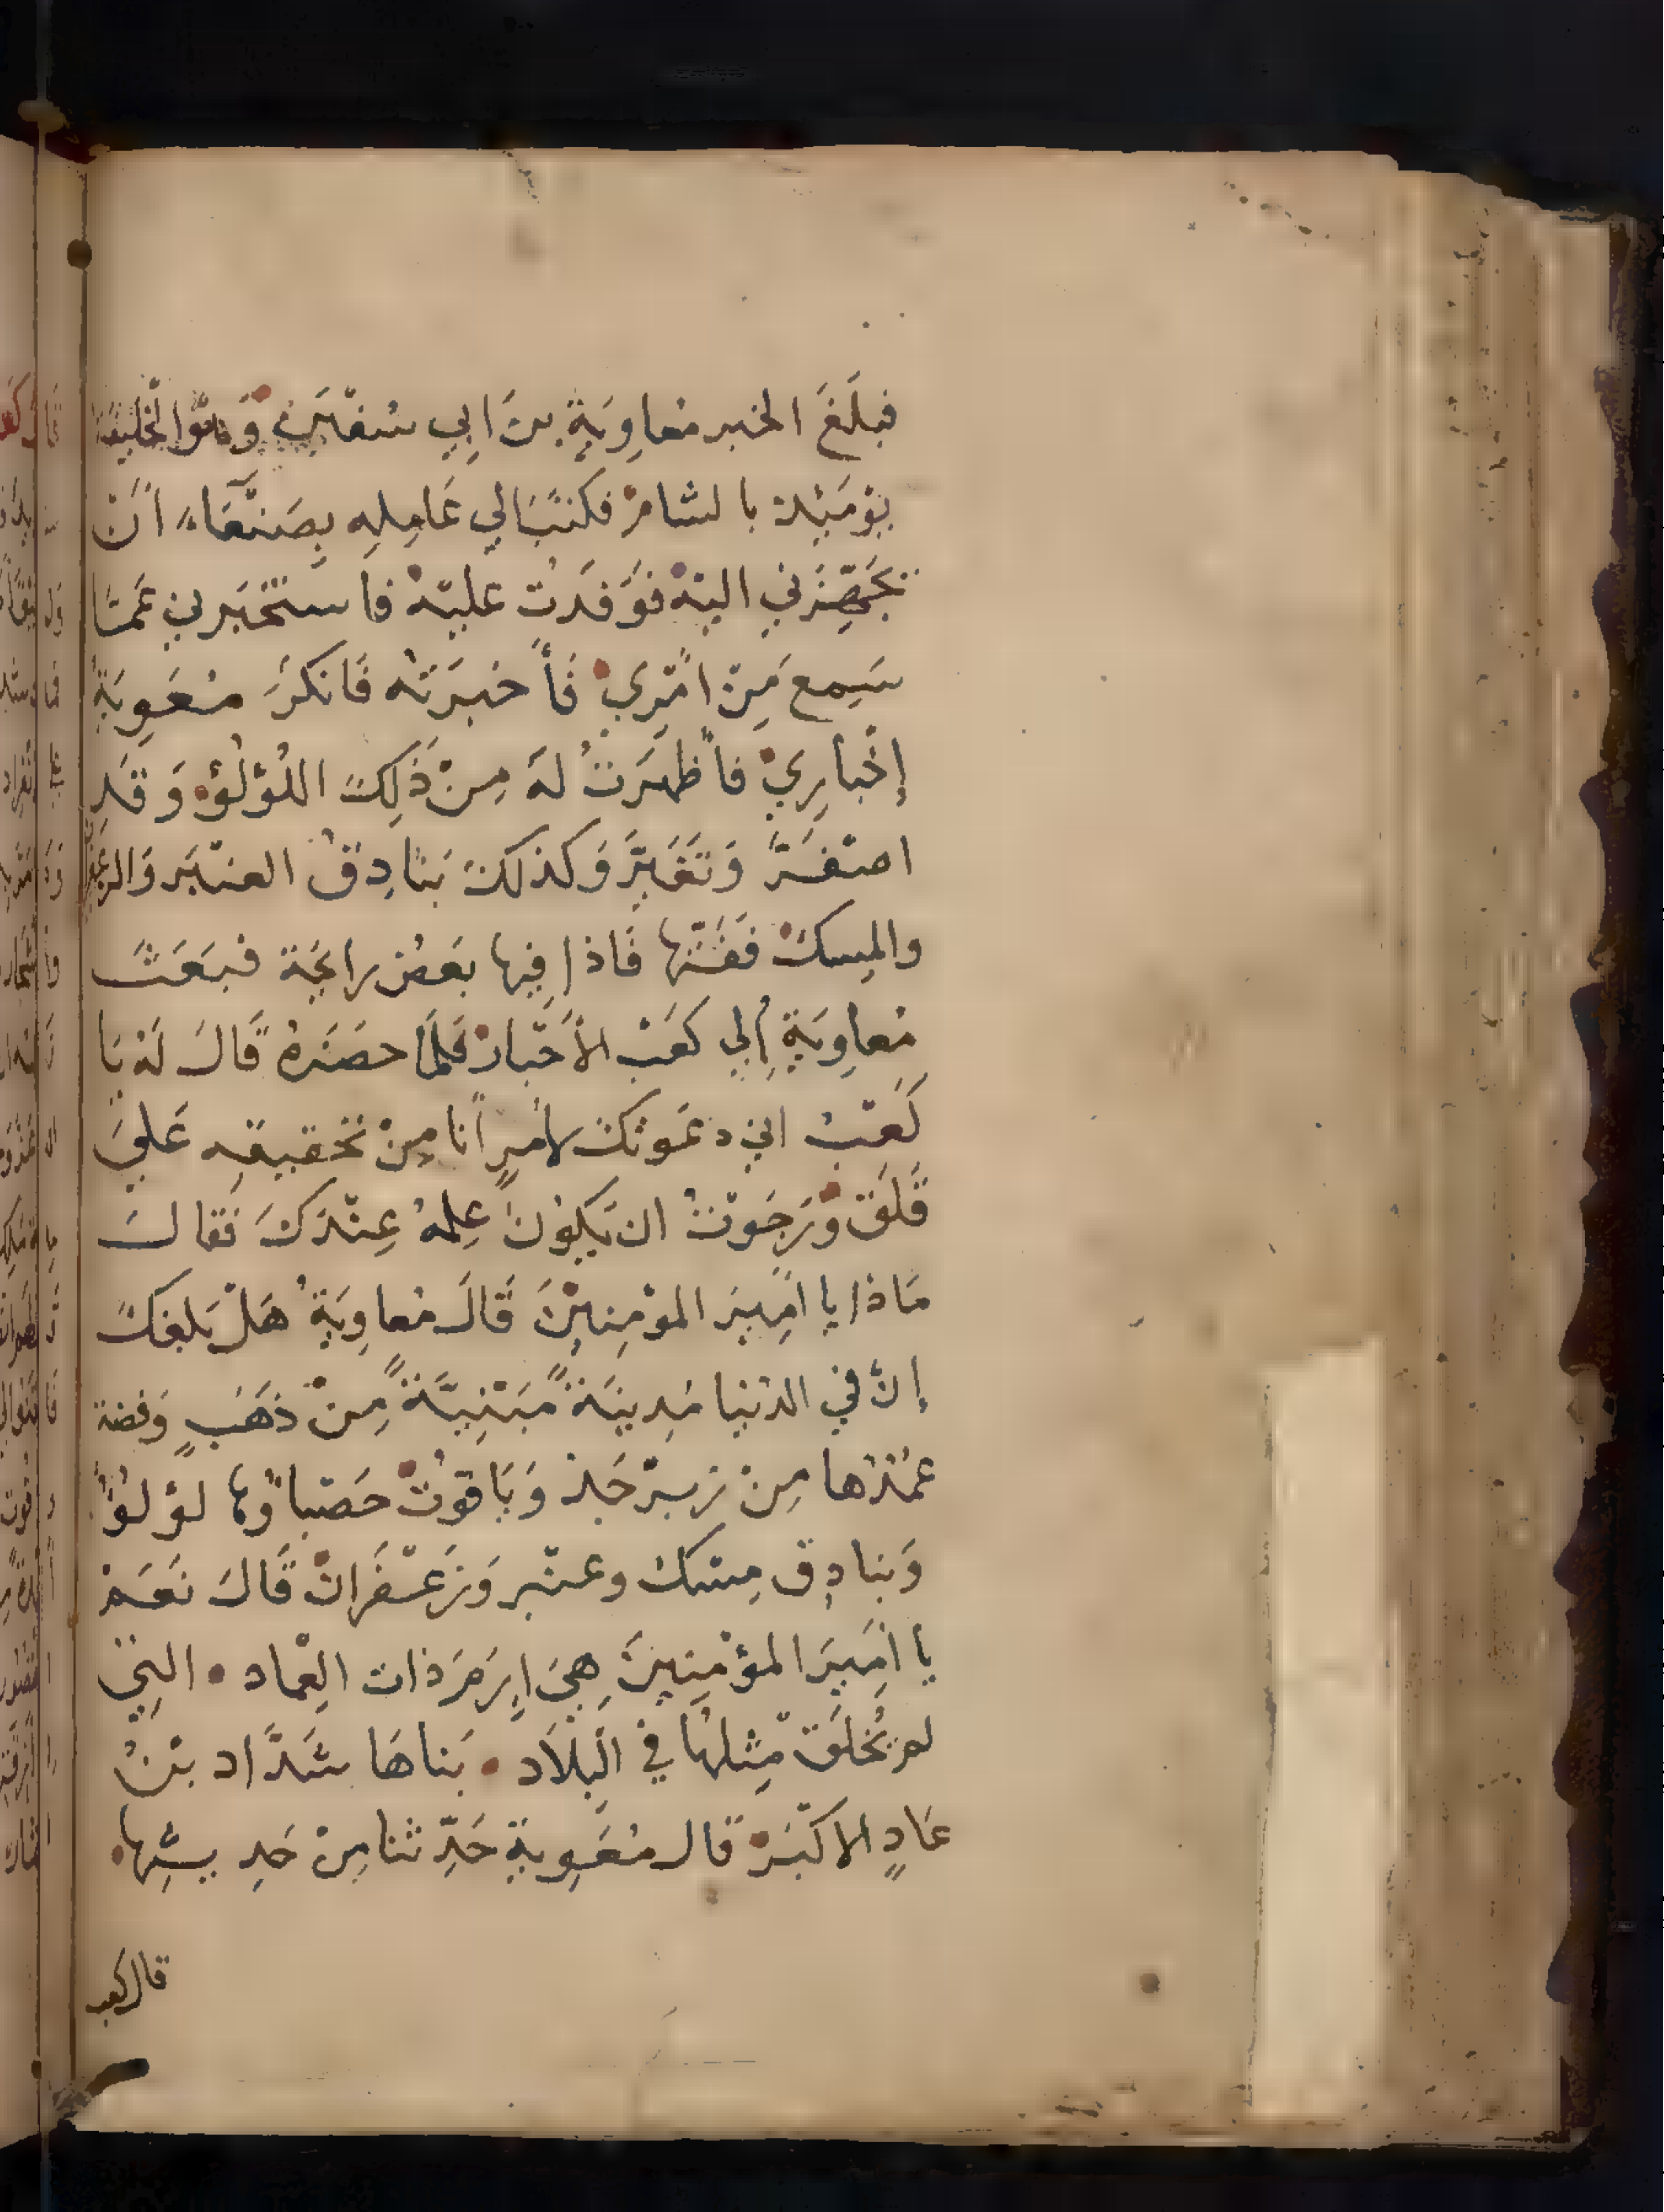 فبلَغَ الخبر مُعاوِيَةِ بنَ ابي سُفيَن وَهوَ الخليفة
يوْمَئِذ بالشامْ فكتبَ الي عَامِلِهِ بِصَنْعَاء اَن
يجَهِّزَني اليْهْ فوَفَدت عليْه فاستخبَرني عَمَّا
سَمِع مِن امْرِي فَأخبَرته فَانكرَ مُعَوِيَة
إخْبارِيْ فاَظهَرتُ لهُ مِنْ ذَلِكَ اللؤلؤ وَقَدِ
اصْفرَّ وَتَغَيرَّ وَكذلكَ بَنادِقُ العنْبَر وَالزعفران
والمِسكْ فَفَتّها فَاذا فِيها بَعَض رايحَة فبَعَثَ
مُعاوِيَة اِلي كعَبْ الأَحْبارْ فَلمَّا حضَرهُ قَالَ لَهُ يَا
كَعَبْ اني دعَوتكَ لأمرٍ انا مِنْ تحقيقِهِ عَليَ
قَلَق وَرَجَوْتُ ان يَكوُن عِلمهُ عِنْدَكَ فَقالَ
مَاذا يا امَيرَ المؤمِنِينَ قَالَ مُعاوِيَةُ هَلْ بَلغكَ
إنَّ في الدُنيا مَدِينَةً مَبْنِيَّةً مِنْ ذهَبٍ وَفضة
عمُدُها مِنْ زبرْجَد وَيَاقوتْ حَصْباؤها لؤلؤاً
وَبنادِق مِسْك وعنْبر وَزَعْفَرانْ قَالَ نعَم
يا امَيرَ المؤمِنِينَ هِيَ اِرَمَ ذات العِماد . التِي
لم يُخلَقْ مِثلهُا في البلَاد . بَناهَا شَدَّاد بْنُ
عَادٍ الاكْبَرْ قال مُعَوِية حَدِّثنا مِنْ حَدِيثِها
قال كعب